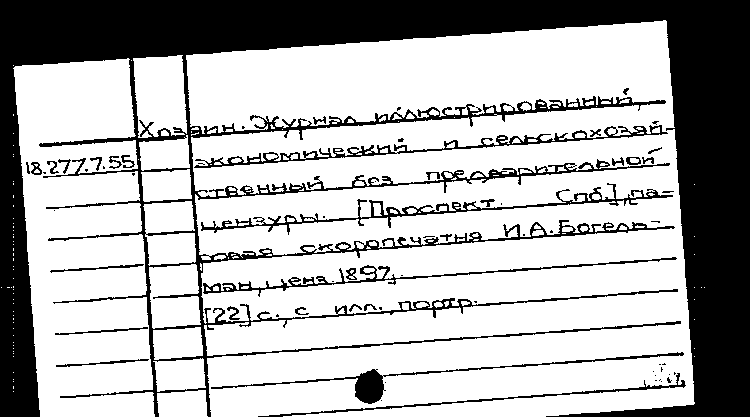 Хозяин. Журнал иллюстрированный,
18.277.7.55 экономический и сельскохозяй-
ственный без предварительной
цензуры. [Проспект. Спб.], па-
ровая скоропечатня И.А. Богель-
ман, ценз. 1897.
[22] с., с илл., портр.